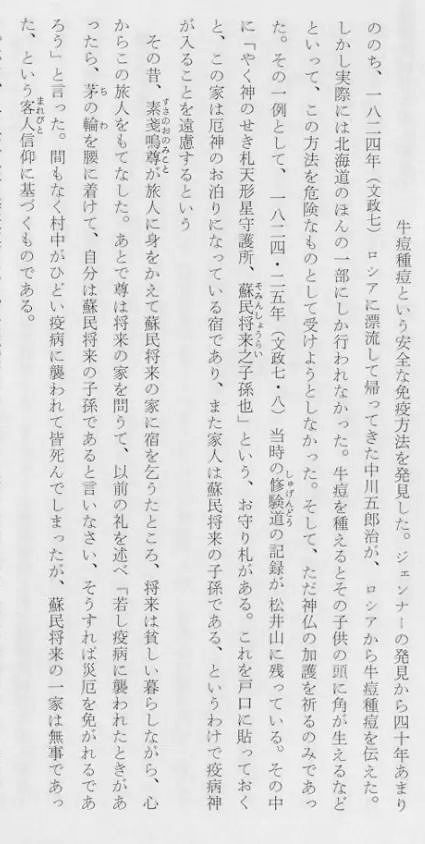 牛痘種痘という安全な免疫方法を発見した。ジェンナーの発見から四十年あまり
ののち、一八二四年（文政七）　ロシアに漂流して帰ってきた中川五郎治が、ロシアから牛痘種痘を伝えた。
しかし実際には北海道のほんの一部にしか行われなかった。牛痘を種えるとその子供の頭に角が生えるなど
といって、この方法を危険なものとして受けようとしなかった。そして、ただ神仏の加護を祈るのみであっ
た。その一例として、一八二四・二五年（文政七・八）当時の修験道の記録が松井山に残っている。その中
に「やく神のせき札天形星守護所、蘇民将来之子孫也」という、お守り札がある。これを戸口に貼っておく
と、この家は厄神のお泊りになっている宿であり、また家人は蘇民将来の子孫である、というわけで疫病神
が入ることを遠慮するという
その昔、素戔嗚尊が旅人に身をかえて蘇民将来の家に宿を乞うたところ、将来は貧しい暮らしながら、心
からこの旅人をもてなした。あとで尊は将来の家を問うて、以前の礼を述べ「若し疫病に襲われたときがあ
ったら、茅の輪を腰に着けて、自分は蘇民将来の子孫であると言いなさい、そうすれば災厄を免がれるであ
ろう」と言った。間もなく村中がひどい疫病に襲われて皆死んでしまったが、蘇民将来の一家は無事であっ
た、という客人信仰に基づくものである。